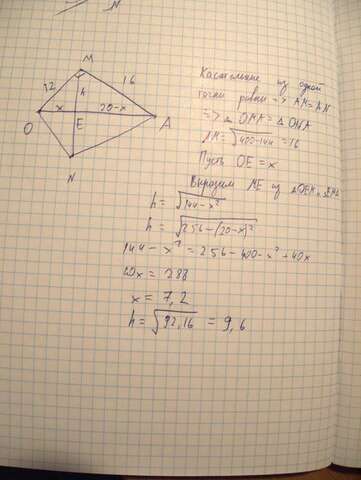 N
M
12
16
x
h
20-x
O
E
A
N
Касательные из одной
точки равны => AM=AN
=> △OMA = △ONA
AM = √400-144 = 16
Пусть OE = x
Выразим ME из △OEM и △EMA
h = √144 - x²
h = √256 - (20-x)²
144 - x² = 256 - 400 - x² + 40x
40x = 288
x = 7,2
h = √92,16 = 9,6